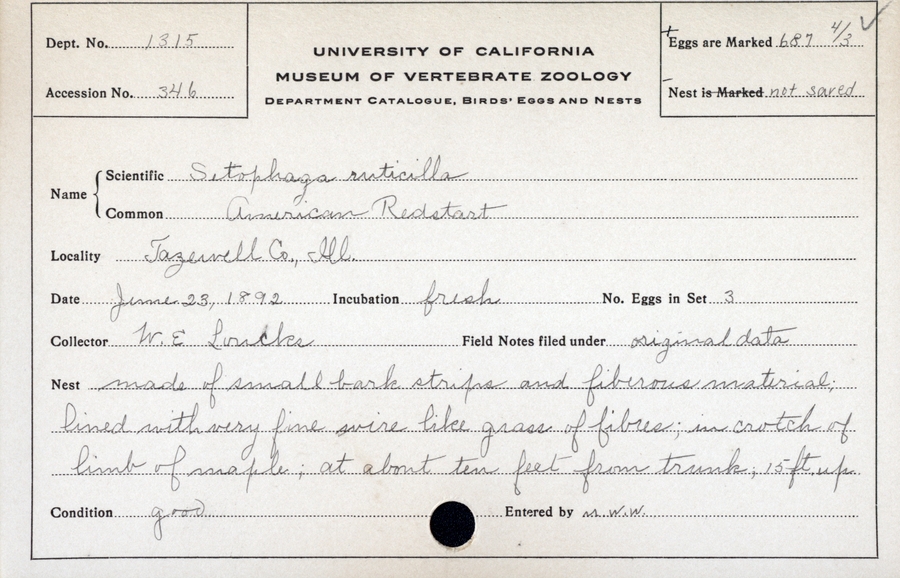 Dept. No. 1315
Accession No. 346
UNIVERSITY OF CALIFORNIA
MUSEUM OF VERTEBRATE ZOOLOGY
DEPARTMENT CATALOGUE, BIRDS' EGGS AND NESTS
Eggs are Marked 687 4/3 ✓
Nest is Marked not saved
Name
Scientific Setophaga ruticilla
Common American Redstart
Locality Tazewell Co., Ill.
Date June 23, 1892 Incubation fresh No. Eggs in Set 3
Collector W. E Loucks Field Notes filed under original data
Nest made of small bark strips and fiberous material;
lined with very fine wire like grass of fibres; in crotch of
limb of maple; at about ten feet from trunk, 15 ft. up.
Condition good Entered by M.W.W.